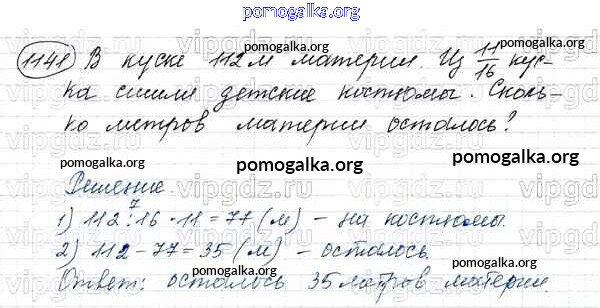 pomogalka.org
pomogalka.org pomogalka.org
1141 В куске 112 м материи. Из 11/16 кус-
ка сшили детские костюмы. Сколь-
ко метров материи осталось?
pomogalka.org
pomogalka.org pomogalka.org
Решение.
7
1) 112 : 16 · 11 = 77 (м) – на костюмы.
2) 112 – 77 = 35 (м) – осталось.
pomogalka.org pomogalka.org
Ответ: осталось 35 метров материи.